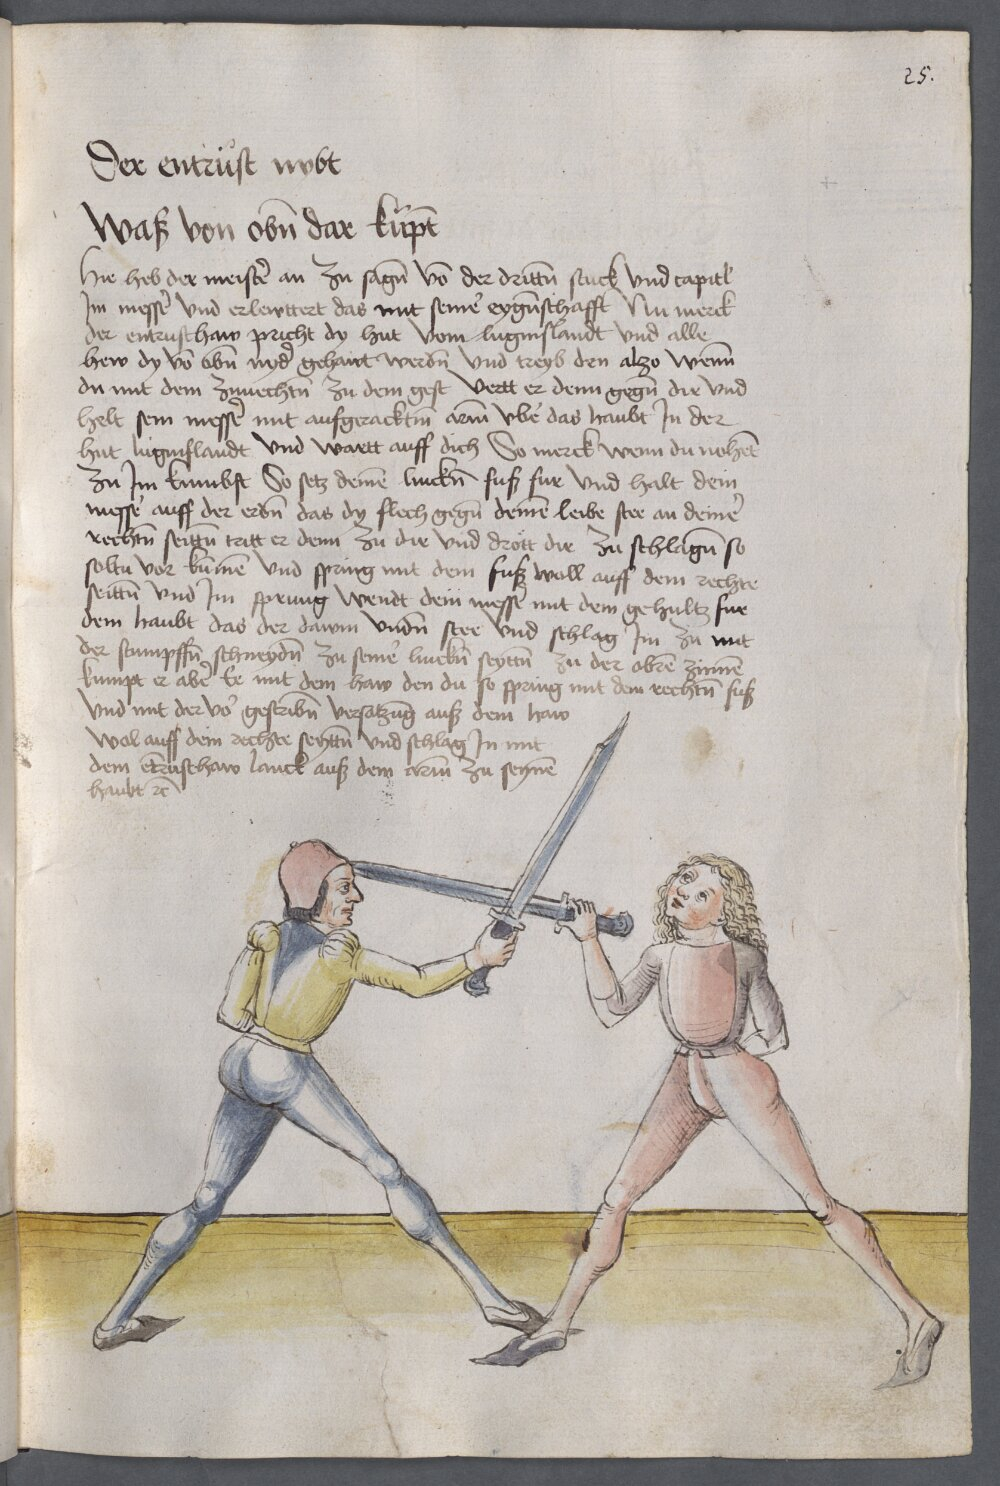 25.
Der entrüst nybt
Waß von obn̄ dar kūpt
Hie heb der meistˀ an zu sagn̄ vō der drittn̄ stuck vnd capitl
Im messˀ vnd erlewttert das mit seinē eygn̄schafft Nu merck
der entrusthaw pricht dy hut vom luginslandt vnd alle
hew dy vō obn̄ nydˀ gehawt werdn̄ vnd treyb den alzo wenn̄
du mit dem zuuechtn̄ zu dem gest vertt er denn gegn̄ dir vnd
helt sein messˀ mit aufgeracktm̄ arm̄ vbˀ das haubt In der
hut luginslandt vnd wartt auff dich So merck wenn du nohent
zu Im kumbst So setz deinē linckn̄ fuß fur vnd halt dein
messˀ auff der erdn̄ das dy flech gegn̄ deinē leibe stee an deinˀ
rechtn̄ seittn̄ tritt er denn zu dir vnd drött dir zu schlagn̄ so
soltu vor kūmē vnd spring mit dem fuß woll auff dein rechte
seittn̄ vnd Im sprung wendt dein messˀ mit dem gehultz fur
dem haubt das der dawm vndn̄ stee vnd schlag Im zu mit
der stumpffn̄ schneydn̄ zu seinˀ linckn̄ seyttn̄ zu der obrē zinnē
kumpt er abˀ Ee mit dem haw den du so spring mit dem rechtn̄ fuß
vnd mit der vorˀ gescribn̄ versatzūg auß dem haw
wol auff dein rechte seyttn̄ vnd schlag In mit
dem ētrusthaw lanck auß dem arm̄ zu seynē
haubt ꝛc̄